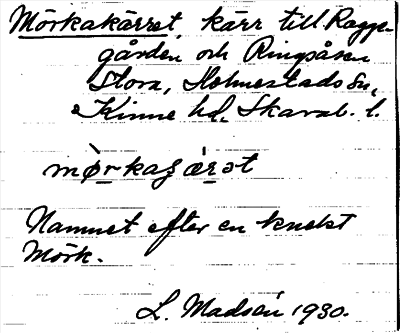 Mörkakärret, kärr till Ragge-
gården och Ringsåsen
Stora, Holmestads sn,
Kinne hd. Skarab. l.
mørkaʂærət
Namnet efter en knekt
Mörk.
L. Madsén 1930.